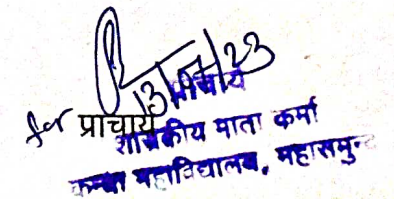 for प्राचार्य
प्राचार्य
शासकीय माता कर्मा
कन्या महाविद्यालय, महासमुन्द